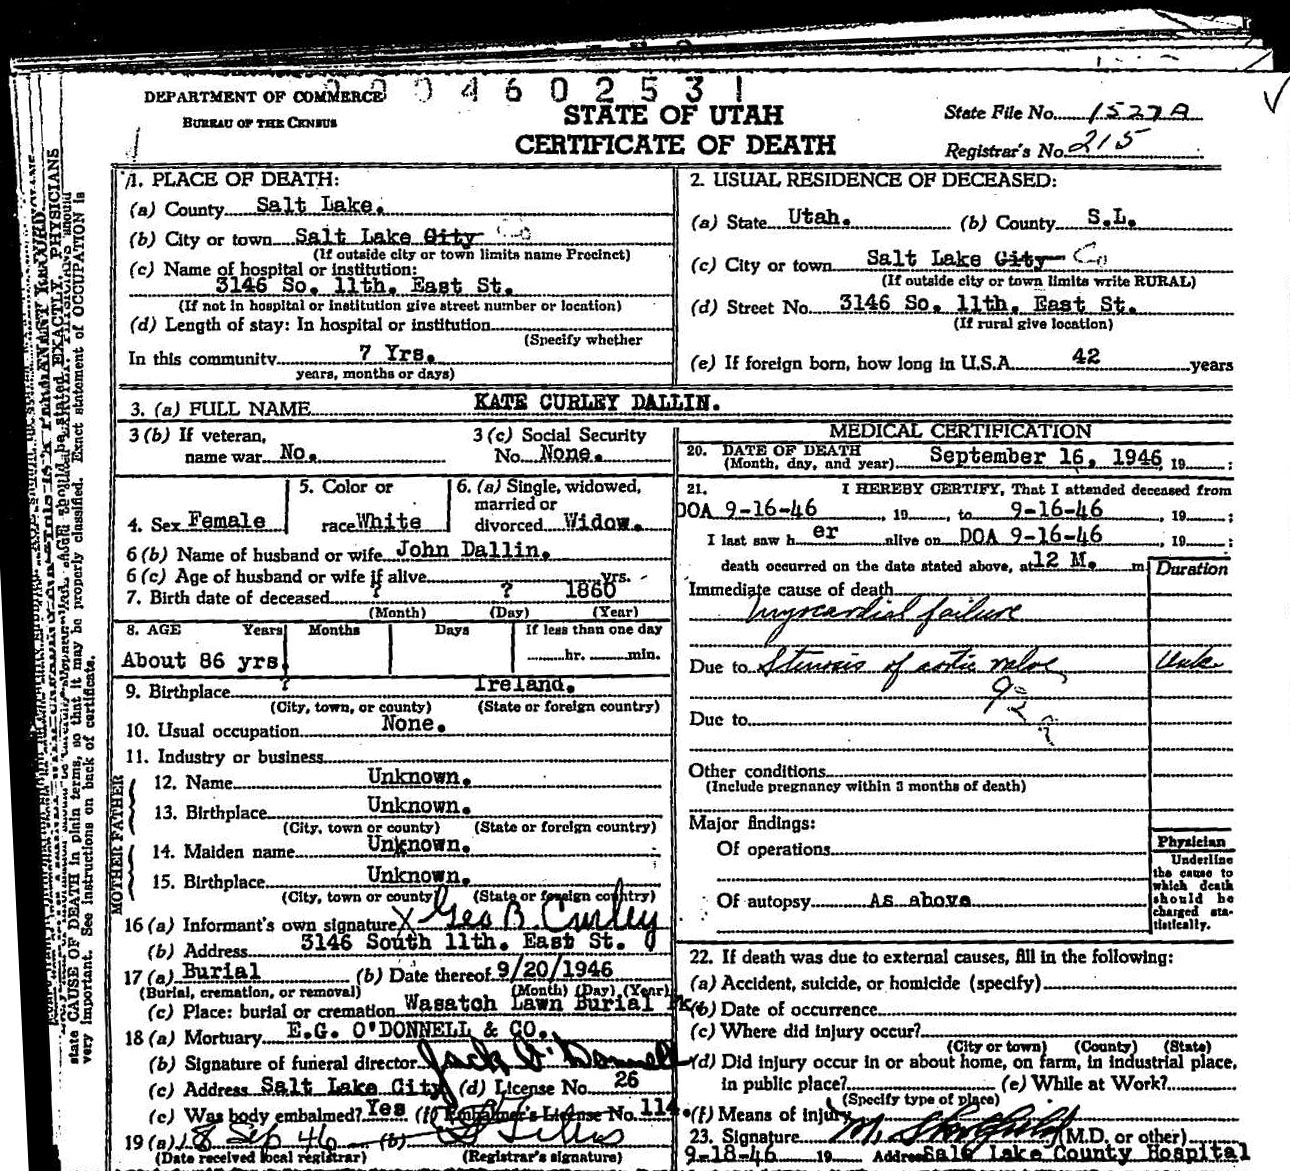 0 0 0 4 6 0 2 5 3 1
DEPARTMENT OF COMMERCE
BUREAU OF THE CENSUS
STATE OF UTAH
CERTIFICATE OF DEATH
State File No. 1527A
Registrar's No. 215
1. PLACE OF DEATH:
(a) County Salt Lake.
(b) City or town Salt Lake City Co
(If outside city or town limits name Precinct)
(c) Name of hospital or institution:
3146 So. 11th. East St.
(If not in hospital or institution give street number or location)
(d) Length of stay: In hospital or institution
(Specify whether
In this community 7 Yrs.
years, months or days)
2. USUAL RESIDENCE OF DECEASED:
(a) State Utah. (b) County S.L.
(c) City or town Salt Lake City Co
(If outside city or town limits write RURAL)
(d) Street No. 3146 So. 11th. East St.
(If rural give location)
(e) If foreign born, how long in U.S.A. 42 years
3. (a) FULL NAME KATE CURLEY DALLIN.
3 (b) If veteran,
name war No.
3 (c) Social Security
No. None.
4. Sex Female
5. Color or
race White
6. (a) Single, widowed,
married or
divorced Widow.
6 (b) Name of husband or wife John Dallin.
6 (c) Age of husband or wife if alive yrs.
7. Birth date of deceased ? ? 1860
(Month) (Day) (Year)
8. AGE Years Months Days If less than one day
About 86 yrs. hr. min.
9. Birthplace ? Ireland.
(City, town, or county) (State or foreign country)
10. Usual occupation None.
11. Industry or business
FATHER
12. Name Unknown.
13. Birthplace Unknown.
(City, town or county) (State or foreign country)
MOTHER
14. Maiden name Unknown.
15. Birthplace Unknown.
(City, town or county) (State or foreign country)
16 (a) Informant's own signature X Geo B. Curley
(b) Address 3146 South 11th. East St.
17 (a) Burial (b) Date thereof 9/20/1946
(Burial, cremation, or removal) (Month) (Day) (Year)
(c) Place: burial or cremation Wasatch Lawn Burial Pk.
18 (a) Mortuary E.G. O'DONNELL & CO.
(b) Signature of funeral director Jack O'Donnell
(c) Address Salt Lake City (d) License No. 26
(e) Was body embalmed? Yes (f) Embalmer's License No. 114.
19 (a) 18 Sep 46 (b)
(Date received local registrar) (Registrar's signature)
MEDICAL CERTIFICATION
20. DATE OF DEATH
(Month, day, and year) September 16, 1946 19 ;
21. I HEREBY CERTIFY, That I attended deceased from
DOA 9-16-46, 19 to 9-16-46, 19 ;
I last saw her alive on DOA 9-16-46, 19 ;
death occurred on the date stated above, at 12 M. m
Duration
Immediate cause of death
Myocardial failure
Due to Stenosis of aortic valve Unk
92
Due to
Other conditions
(Include pregnancy within 3 months of death)
Major findings:
Of operations
Of autopsy As above
Physician
Underline
the cause to
which death
should be
charged sta-
tistically.
22. If death was due to external causes, fill in the following:
(a) Accident, suicide, or homicide (specify)
(b) Date of occurrence
(c) Where did injury occur?
(City or town) (County) (State)
(d) Did injury occur in or about home, on farm, in industrial place,
in public place? (e) While at Work?
(Specify type of place)
(f) Means of injury
23. Signature M. (M.D. or other)
9-18-46 19 Address Salt Lake County Hospital
state CAUSE OF DEATH in plain terms, so that it may be properly classified. Exact statement of OCCUPATION is
very important. See instructions on back of certificate.